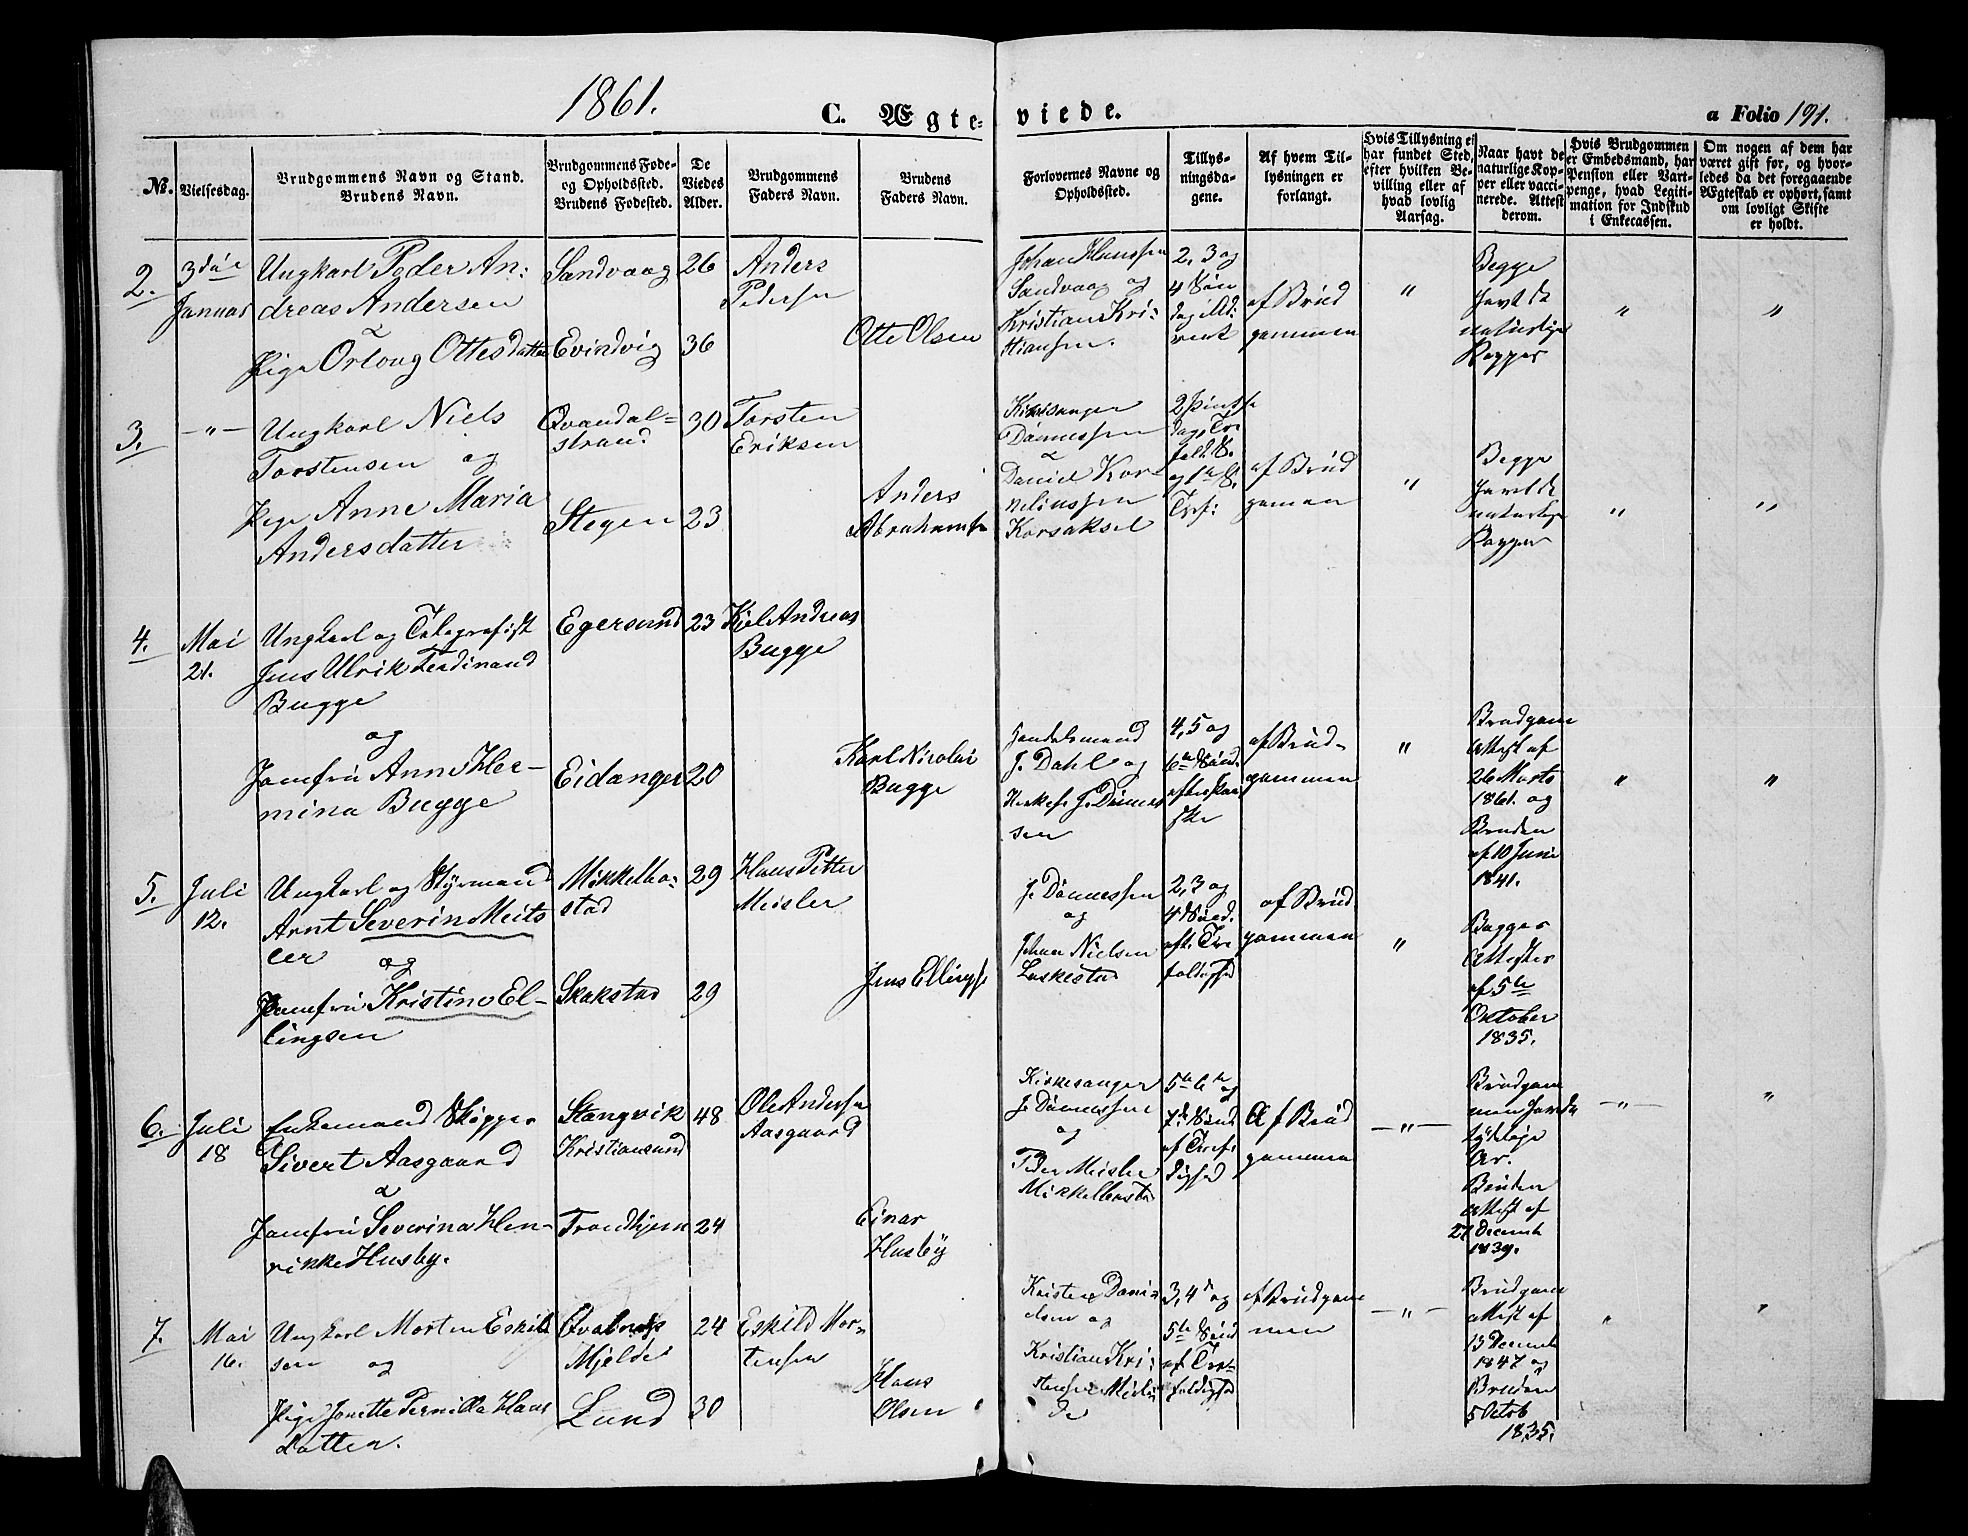 1861.
C. Ægte- viede.
a Folio 191.
No.
Vielsesdag.
Brudgommens Navn og Stand.
Brudens Navn.
Brudgommens Føde-
og Opholdssted.
Brudens Fødested.
De
Viedes
Alder.
Brudgommens
Faders Navn.
Brudens
Faders Navn.
Forlovernes Navne og
Opholdssted.
Tillys-
ningsda-
gene.
Af hvem Til-
lysningen er
forlangt.
Hvis Tillysning ei
har fundet Sted,
efter hvilken Be-
villing eller af
hvad lovlig
Aarsag.
Naar havt de
naturlige Kop-
per eller vacci-
nerede. Attest
derom.
Hvis Brudgommen
er Embedsmand, har
Pension eller Vart-
penge, hvad Legiti-
mation for Indskud
i Enkecassen.
Om nogen af dem har
været gift før, og hvor-
ledes da det foregaaende
Ægteskab er ophørt, samt
om lovligt Skifte
er holdt.
2.
3die
Januar
Ungkarl Peder An:
dreas Andersen
Pige Orloug Ottesdatter
Sandvaag
Evindvig
26
36
Anders
Pedersen
Otte Olsen
Johan Hanssen
Sandvaag og
Kristian Kri:
stiansen.
2, 3 og
4 Søn
dag i Ad:
vent
af Brud
gommen
"
Begge
havt de
naturlige
Kopper
"
"
3.
-"-
Ungkarl Niels
Torstensen og
Pige Anne Maria
Andersdatter
Qvandal=
strand
Stegen
30
23
Torsten
Eriksen
Anders
Abrahamsen
Kirkesanger
Dønnessen
Daniel Kor-
neliussen
Korsaksel
2 Pintse
dag, Tre
og 1te S.
Tref:
af Brud
gommen
"
Begge
havt de
naturlige
Kopper
"
"
4.
Mai
21.
Ungkarl og Telegrafist
Jens Ulrik Ferdinand
Bugge
og
Jomfru Anne Her-
mina Bugge
Egersund
Eidanger
23
20
Kiel Andreas
Bugge
Karl Nicolai
Bugge
Handelsmand
J. Dahl og
J. Dønnes
sen
4, 5 og
6te Sønd.
efter Paa
ske
af Brud-
gommen
"
Brudgom
Attest af
26 Marts
1861. og
Bruden
af 10 Juni
1841.
"
"
5.
Juli
12.
Ungkarl og Styrmand
Arnt Severin Meits
ler
og
Jomfru Kristine El-
lingsen
Mikkelbo:
stad
Skakstad
29
29
Hans Petter
Meisler
Jens Ellings
J. Dønnessen
og
Johan Nielsen
Laskestad
2, 3 og
4de Sønd.
eft. Tre
foldighed
af Brud
gommen
"
Begges
Attester
af 5te
Oktober
1835.
6.
Juli
18
Enkemand Skipper
Sivert Aasgaard
Jomfru Severina Hen-
rikke Husby.
Stangvik
Kristiansund
Trondhjem
48
24
Ole Andersen
Aasgaard
Einar
Husby
Kirkesanger
J. Dønnessen
og
Peder Meisler
Mikkelbostad
5te 6te og
7de Sønd
af Tref:
dighed
Af Brud
gommen
-"-
Brudgom
men havt de
Ar.
Bruden
Attest af
27 Decemb
1839.
-"-
"
7.
Mai
16.
Ungkarl Morten Eskild
sen og
Pige Jonette Pernilla Hans
datter.
Qvalnes
Mjelde
Lund
24
30
Eskild Mor-
tensen
Hans
Olsen
Kristen Dani-
elsen og
Kristian Kri:
stensen Mjel
de
3, 4de og
5te Sønd
af Tre-
foldighed
af Brudgom
men
-"-
Brudgom
Attest af
13 Decemb
1847 og
Bruden
5 Octob
1835.
"
"